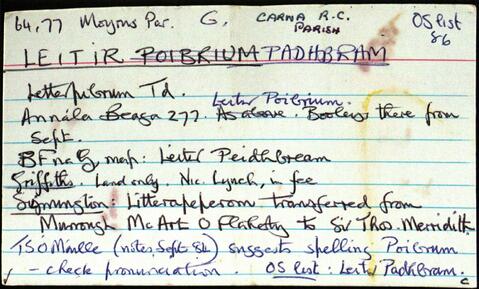 64,77 Moyrus Par. G. CARNA R.C. PARISH OS list 86
LEITIR POIBRIUM PADHBRAM
Letterpibrum Td. Leitir Poibrium.
Annála Beaga 277. As above. Booleys there from
Sept.
BF na G, map: Leitir Peidhbream
Griffiths. Land only. Nic. Lynch, in fee
Symington: Litterapeperom transferred from
Murrough McArt O Flaherty to Sir Thos. Merridith
TSÓ Máille (notes, Sept 86) suggests spelling Poibrum
- check pronunciation. OS list: Leitir Padhbram.
c